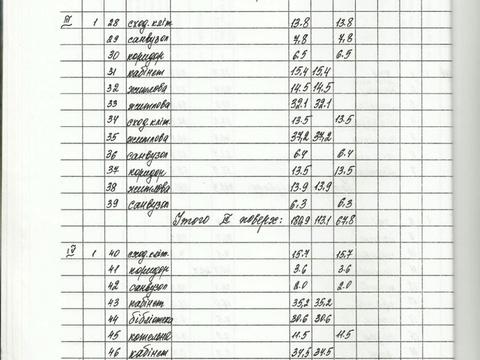 III 1 28 сход.кліт. 13.8 13.8
29 санвузол 7,8 7,8
30 коридор 6.5 6.5
31 кабінет 15,4 15,4
32 житлова 14.5 14,5
33 житлова 32.1 32.1
34 сход.кліт. 13.5 13.5
35 житлова 37,2 37,2
36 санвузол 6.4 6.4
37 коридор 13.5 13.5
38 житлова 13.9 13,9
39 санвузол 6,3 6.3
Итого III поверх: 180,9 113,1 67.8
IV 1 40 сход.кліт. 15.7 15.7
41 коридор 3.6 3.6
42 санвузол 2.0 2.0
43 кабінет 35,2 35,2
44 бібліотека 30.6 30,6
45 котельня 11.5 11.5
46 кабінет 34,5 34.5